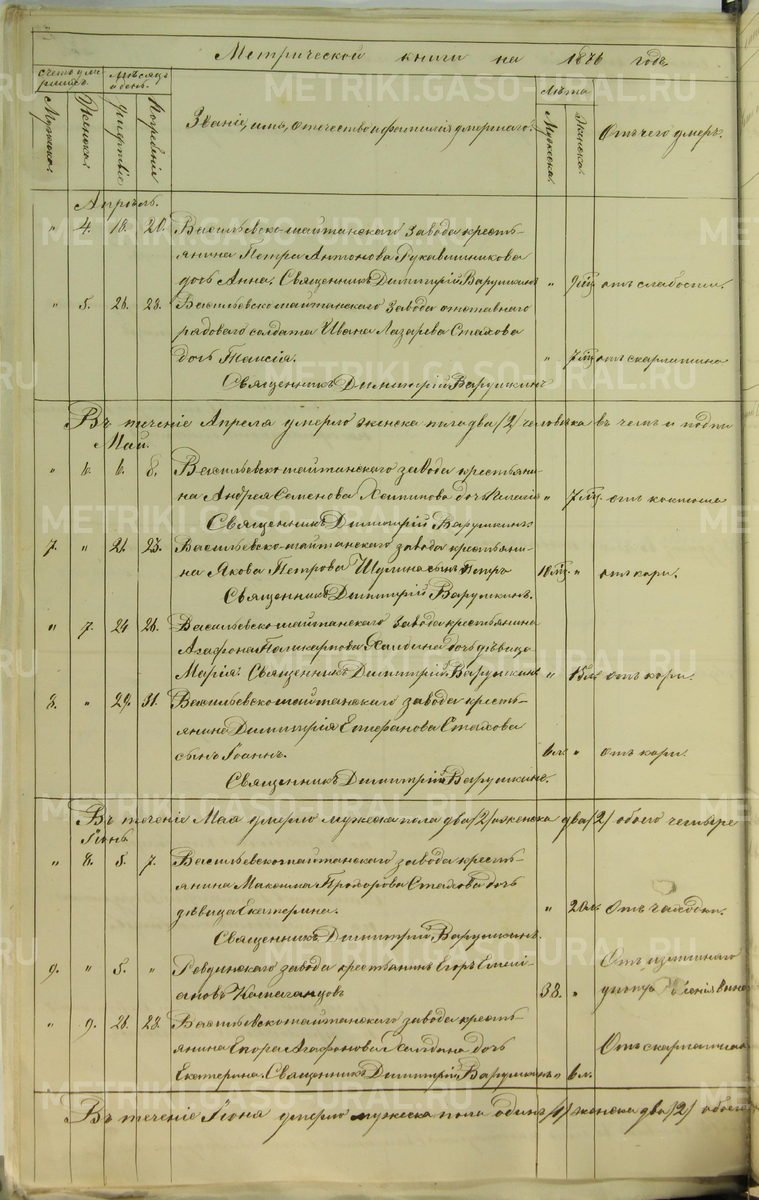 Метрической книги на 1876 годъ
Счетъ умершихъ. Мѣсяцъ и день.
Мужска. Женска. Смерти Погребенія
Званіе, имя, отчество и фамилія умершаго.
Лѣта
Мужска. Женска.
Отъ чего умеръ.
Апрѣль.
" 4. 18. 20. Васильевско-шайтанскаго завода кресть-
янина Петра Антонова Рукавишникова
дочь Анна. Священникъ Димитрій Варушкинъ " 9 мѣц отъ слабости.
" 5. 26. 28. Васильевскошайтанскаго завода отставнаго
рядоваго солдата Ивана Лазарева Стахова
дочь Таисія. " 7 мѣц отъ скарлатина
Священникъ Димитрій Варушкинъ
Въ теченіе Апреля умерло женска пола два /2/ человѣка въ чемъ и подпи
Май.
" 6. 6. 8. Васильевскошайтанскаго завода крестьяни-
на Андрея Семенова дочь " 7 мѣц. отъ
Священникъ Димитрій Варушкинъ
7. " 21. 23. Васильевско-шайтанскаго завода крестьяни-
на Якова Петрова сынъ Петръ 10 мѣц. " отъ кори.
Священникъ Димитрій Варушкинъ.
" 7. 24 26. Васильевскошайтанскаго завода крестьянина
Агафона Поликарпова Халдина дочь дѣвица
Марія. Священникъ Димитрій Варушкинъ " 15 л. отъ кори.
8. " 29. 31. Васильевскошайтанскаго завода кресть-
янина Димитрія Епифанова Стахова
сынъ Іоаннъ. 6 л. " отъ кори.
Священникъ Димитрій Варушкинъ.
Въ теченіе Мая умерло мужеска пола два /2/ женска два /2/ обоего четыре
Іюнь
" 8. 5. 7. Васильевскошайтанскаго завода кресть-
янина Максима Прохорова Стахова дочь
дѣвица Екатерина. " 20 л. Отъ чахотки.
Священникъ Димитрій Варушкинъ.
9. " 5. " Ревдинскаго завода крестьянинъ Егоръ Емелі-
ановъ 38. " Отъ излишняго
вина
" 9. 26. 28. Васильевскошайтанскаго завода кресть-
янина Егора Агафонова Халдина дочь Отъ скарлатина
Екатерина. Священникъ Димитрій Варушкинъ " 6 л.
Въ теченіе Іюня умерло мужеска пола одинъ /1/ женска два /2/ обоего
METRIKI.GASO-URAL.RU